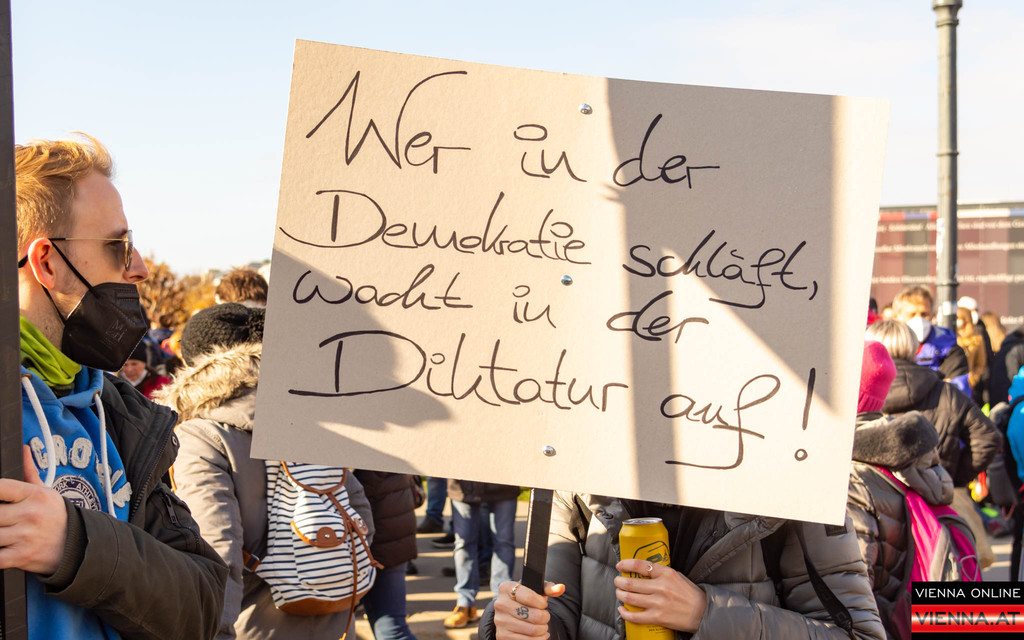 Wer in der
Demokratie schläft,
wacht in der
Diktatur auf!
VIENNA ONLINE
VIENNA.AT